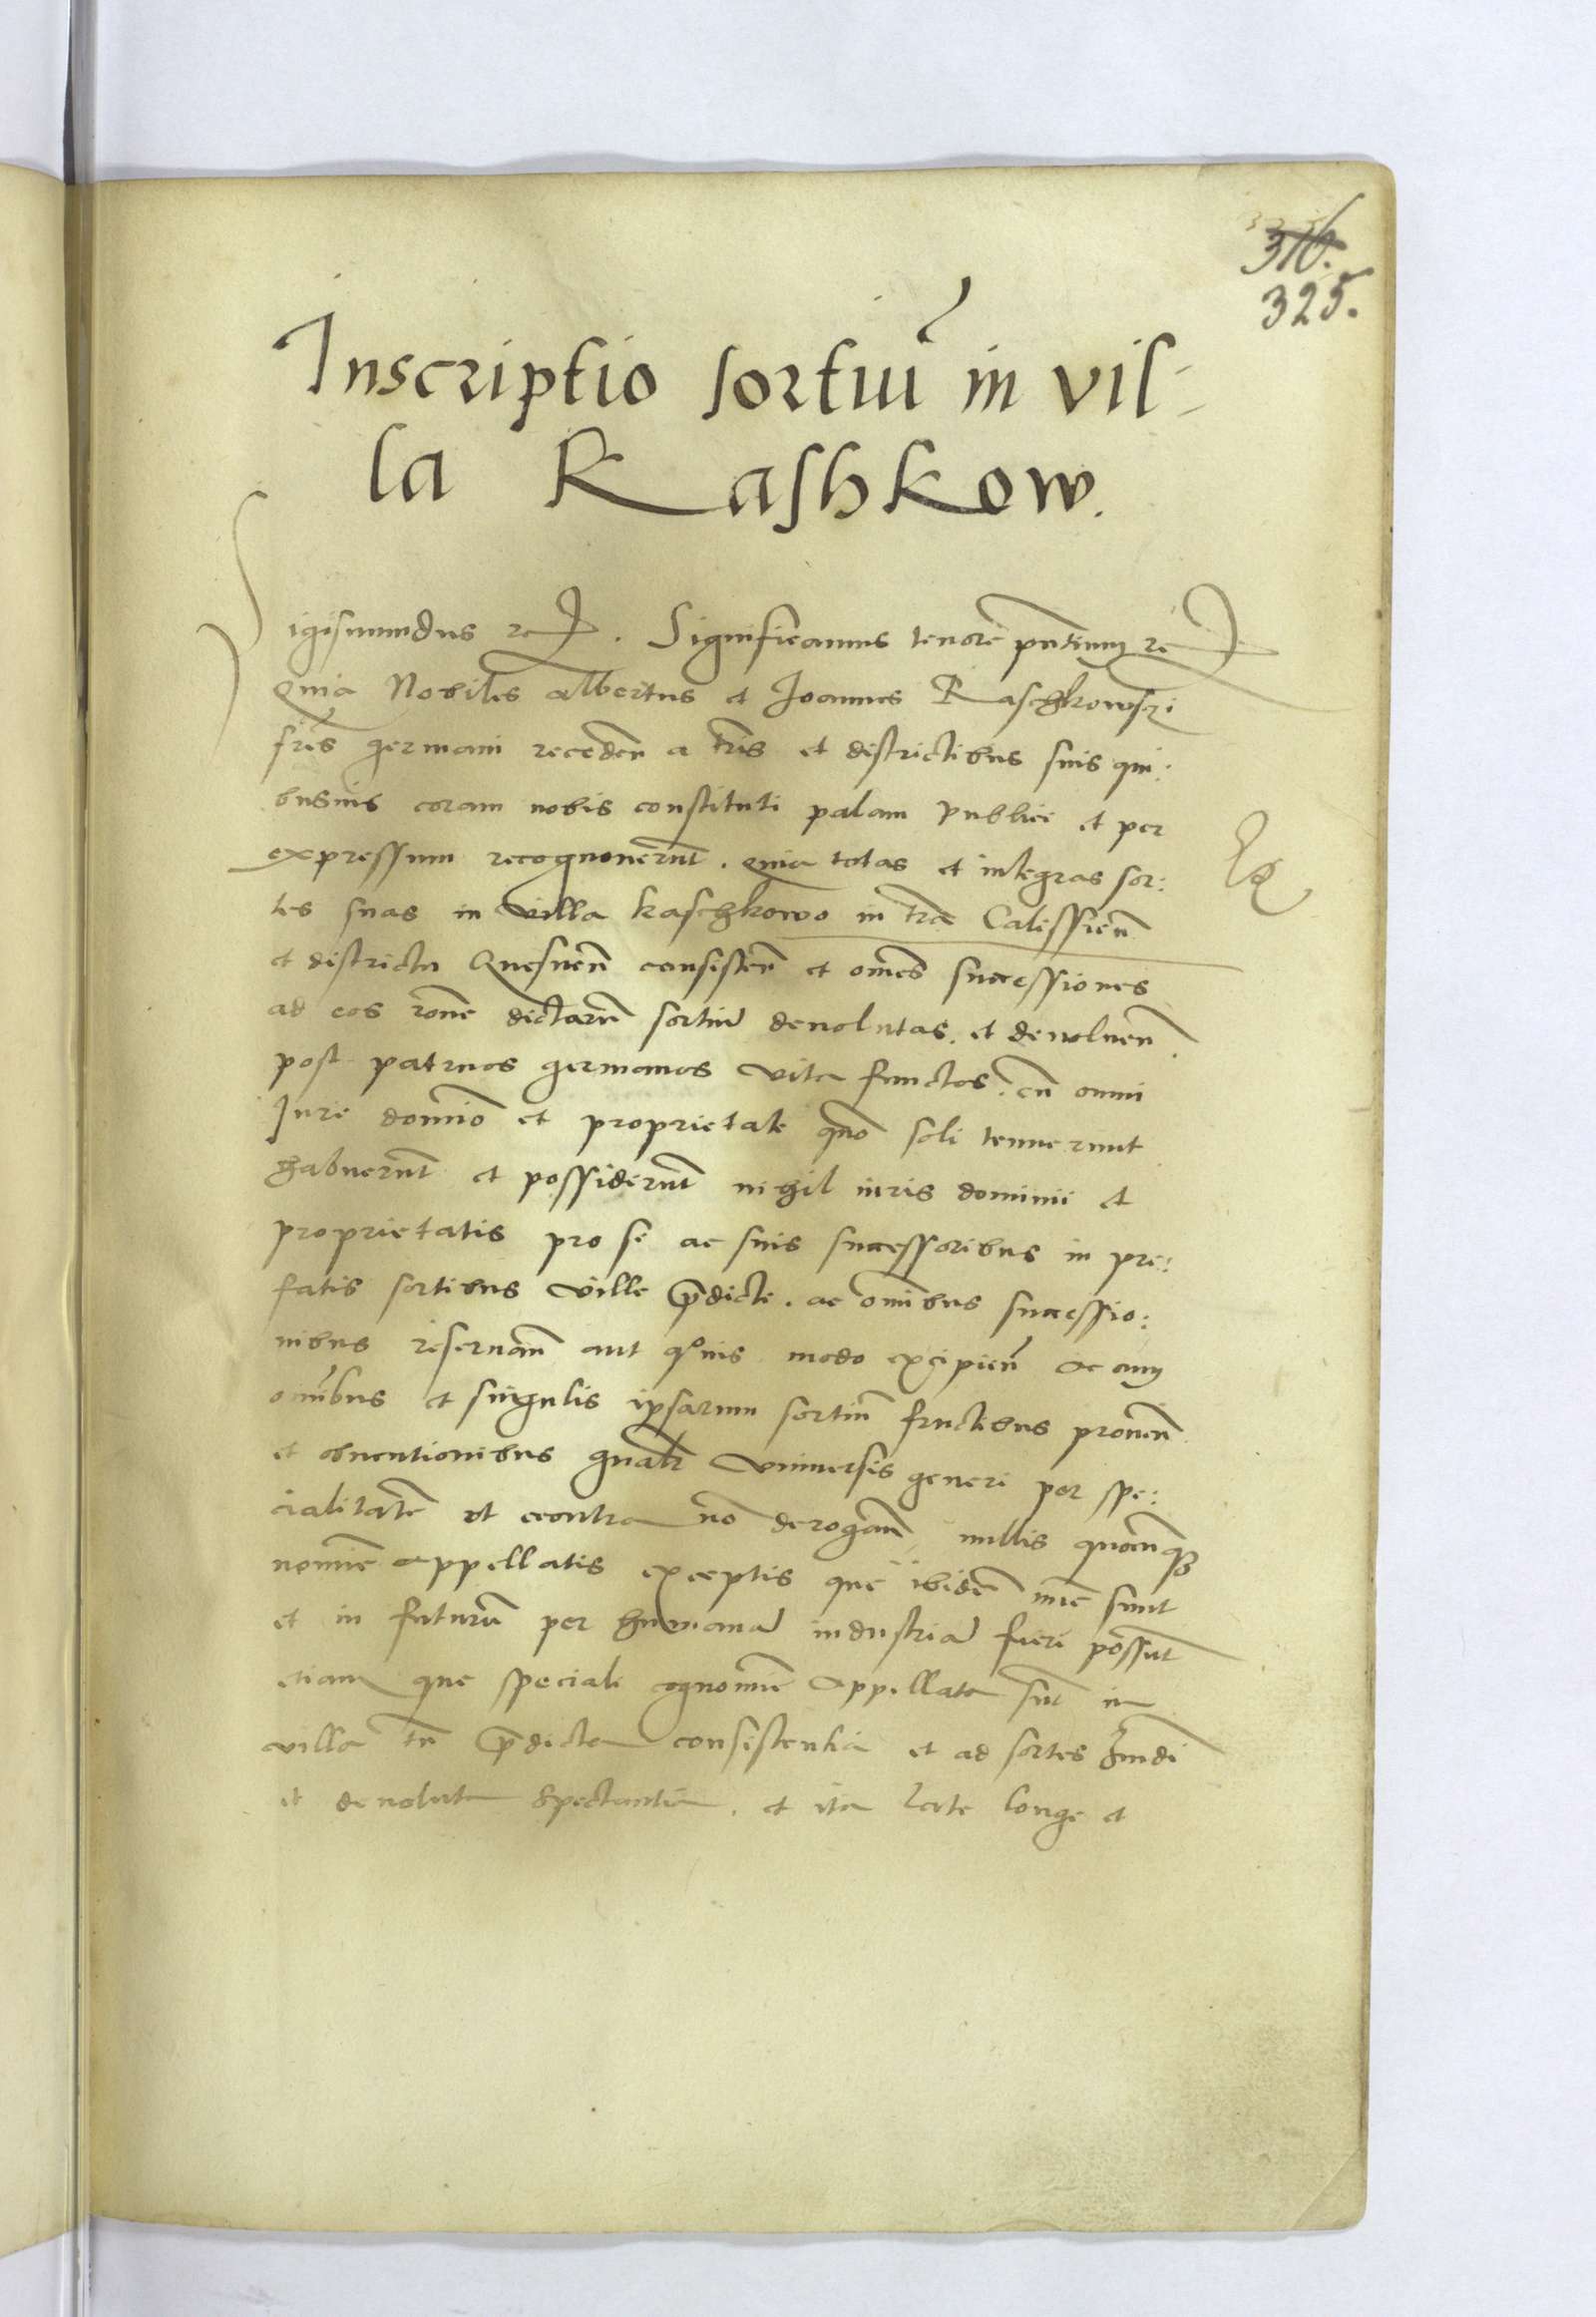 316.
325.
Inscriptio sortiū in vil-
la Rashkow.
Sigismundus rc. Significamus tenore pntium rc
Quia Nobiles albertus et Joannes Raschkowsci
frēs germani receden a tris et districtibus suis qui:
busuis coram nobis constituti palam publice et per
expressum recognouerūt. quia totas et integras sor:
tes suas in villa Raschkowo in tra Calissien
et districtu Gnesnen consisten et omēs successiones
ad eos rōne dictarū sortiū deuolutas. et deuoluen
post patruos germanos vita functos. cū omni
Jure dominio et proprietate quō soli tenuerunt
habuerūt et possiderūt nihil iuris dominii et
proprietatis pro se ac suis successoribus in pre:
fatis sortibus ville p̄dicte. ac omībus successio:
nibus reseruan aut quis modo excipien ac cum
omībus et singulis ipsarum sortiū fructibus prouen
et obuentionibus gnalr vniuersis generi per spe:
cialitatē et econtra nō derogan nullis quocunq3
nomīe appellatis exceptis que ibidē nunc sunt
et in futurū per humanā industriā fieri possūt
etiam que speciali cognomīe appellata sūt in
villa tn p̄dicta consistentia et ad sortes hmōdi
et deuoluta spectantia. et ita late longe et